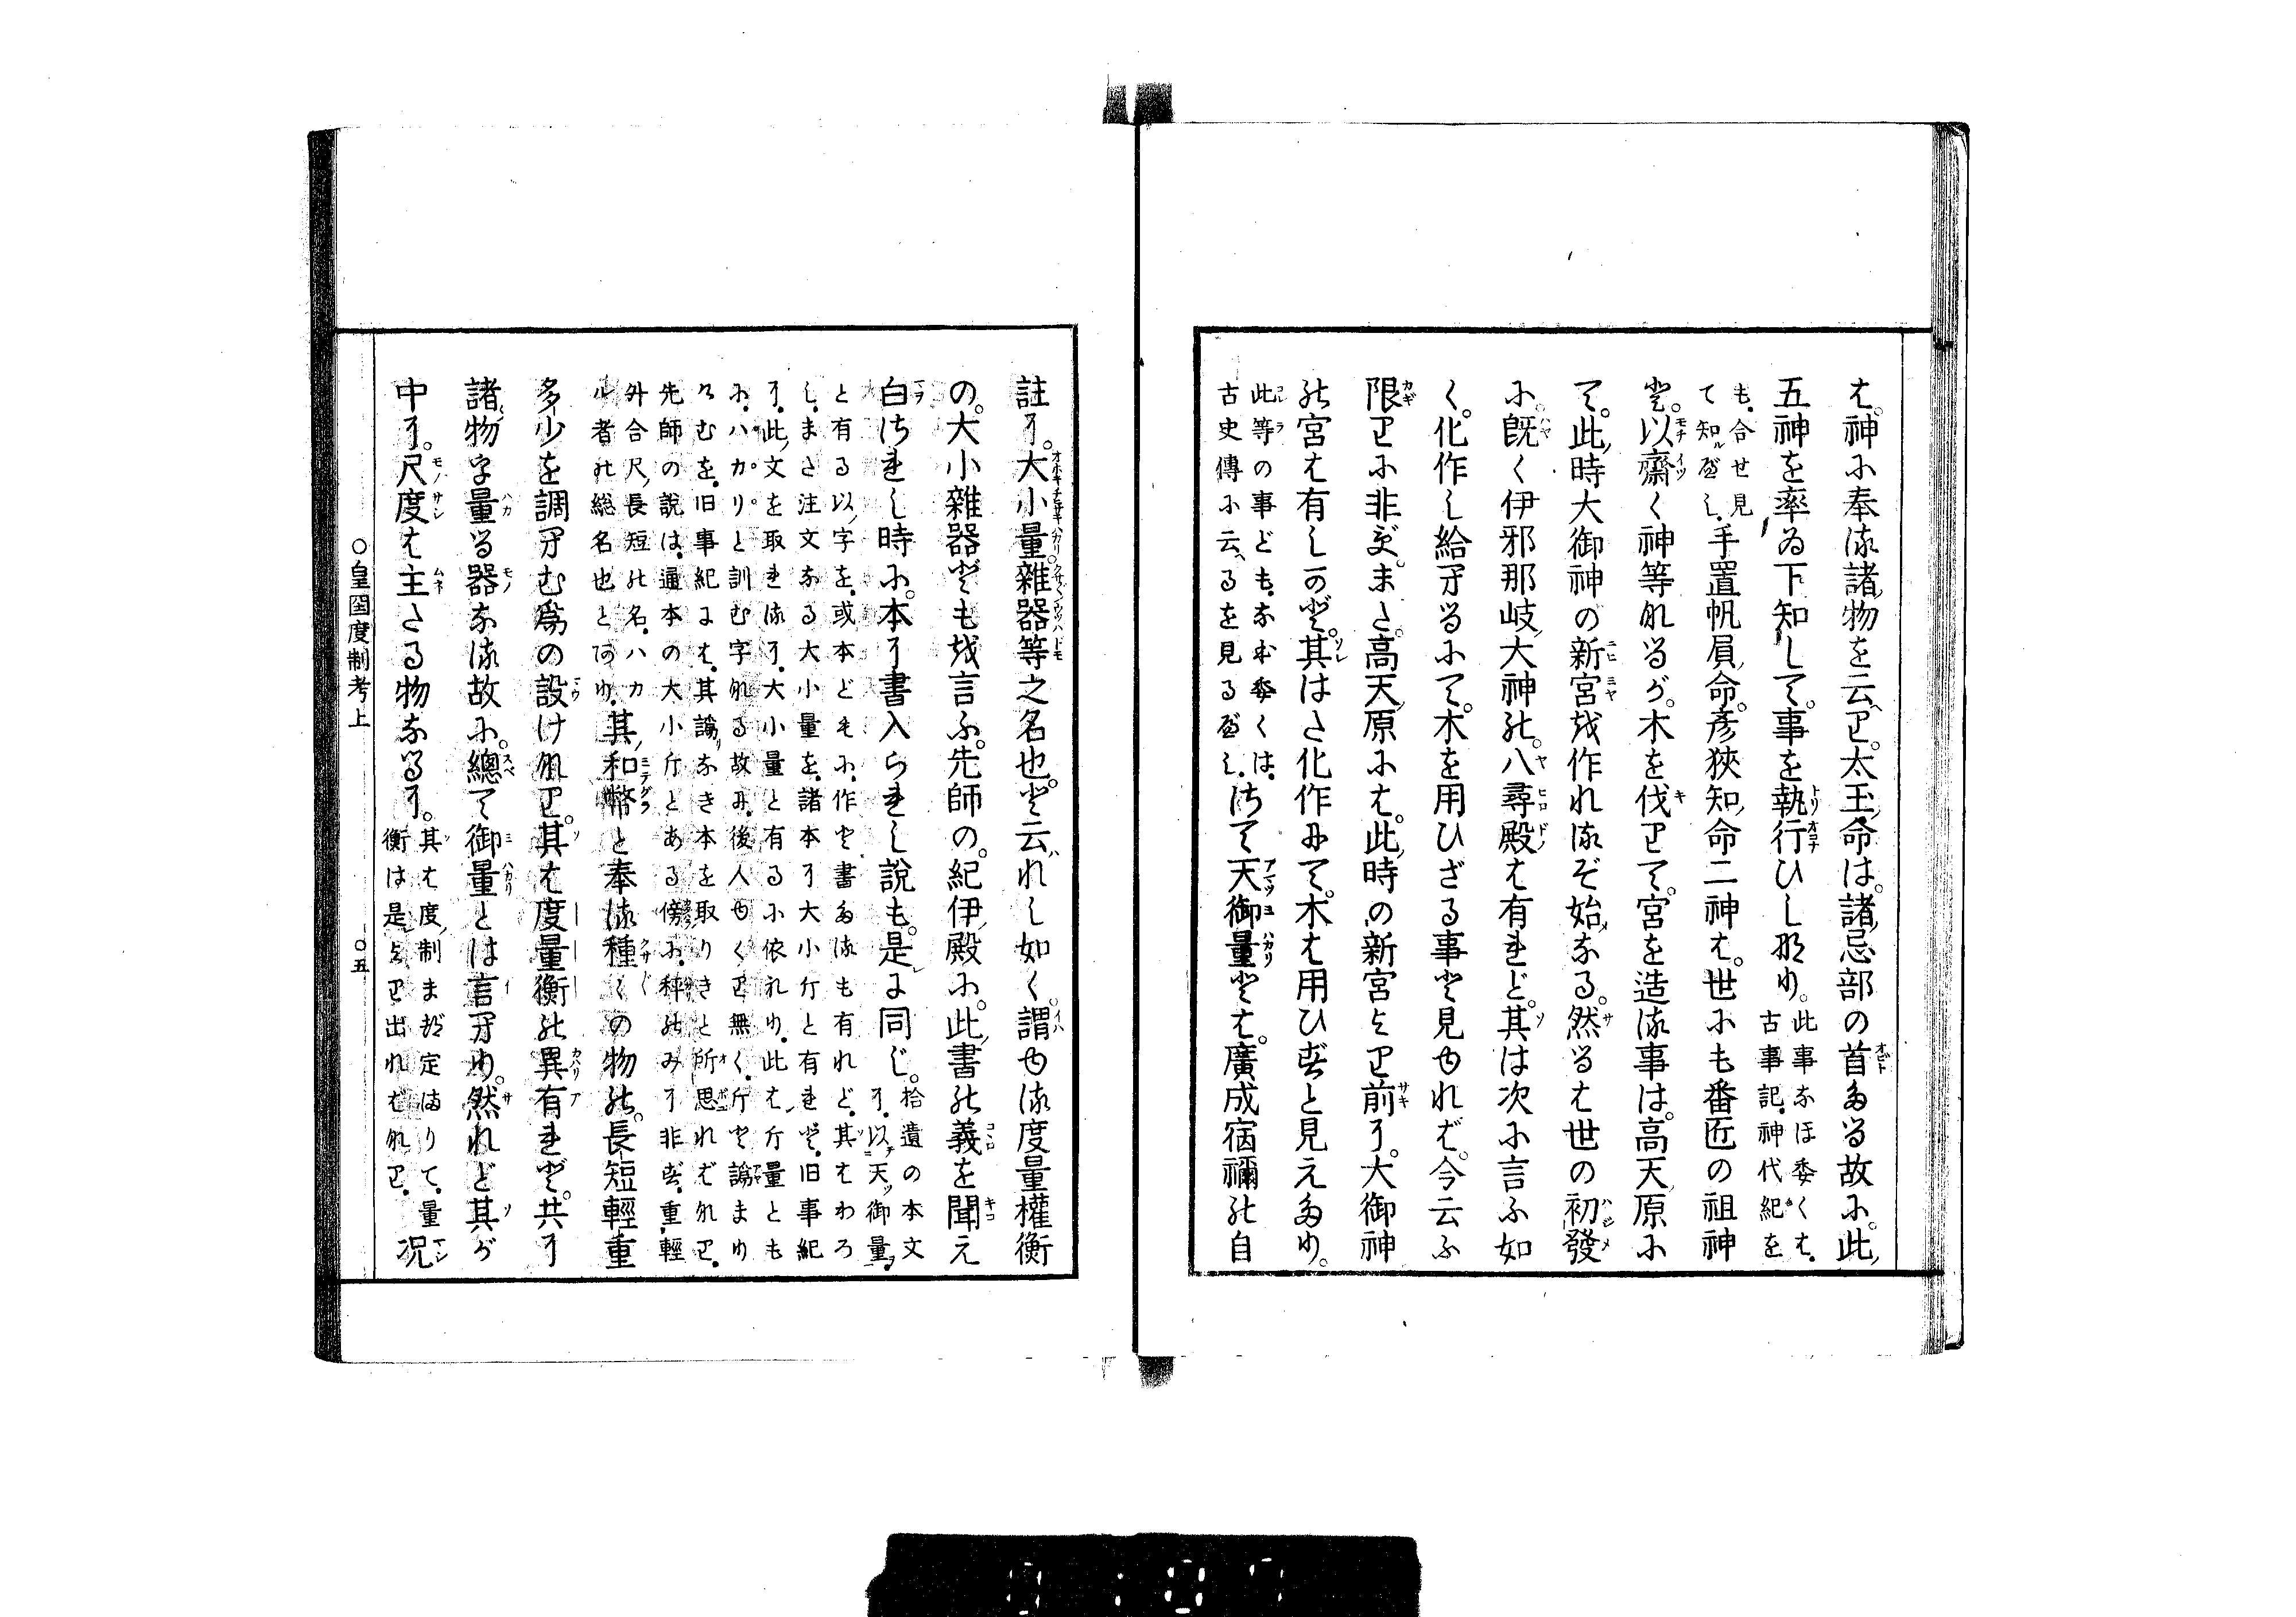 は。神に奉る諸物を云へり。太玉命は。諸忌部の首たる故に。此
五神を率ゐ下知して。事を執行ひしなり。此事なほ委くは。
古事記。神代紀を
も。合せ見
て知べし。手置帆負命。彦狭知命二神は。世にも番匠の祖神
と。以齋く神等なるが。木を伐りて。宮を造る事は。高天原に
て。此時大御神の新宮を作れるぞ始なる。然るは世の初發
に。既く伊邪那岐大神の。八尋殿は有れど。其は次に言ふ如
く。化作し給へるにて。木を用ひざる事と見ゆれば。今云ふ
限りに非ず。また。高天原には。此時の新宮より前に。大御神
の宮は有しかど。其はた化作にて。木は用ひずと見えたり。
此等の事ども。なほ委くは。
古史傳に云へるを見るべし。
さて天御量とは。廣成宿禰の自
註に。大小量雜器等之名也。と云れし如く。謂ゆる度量權衡
の。大小雜器どもを言ふ。先師の。紀伊殿に。此書の義を聞え
白されし時に。本に書入られし說も。是に同じ。拾遺の本文
に。以天御量。
と有る以字を。或本どもに。作と書たるも有れど。其はわろ
し。また注文なる大小量を。諸本に大小斤と有れど。旧事紀
に。此文を取れるに。大小量と有るに依れり。此は斤量とも
に。ハカリと訓む字なる故に。後人ゆくり無く。斤と謚まり
つむを。旧事紀には。其謚なき本を取りきと所思ればなり。
先師の說は。通本の大小斤とある傍に。秤のみに非ず。重軽
外合尺長短の名。ハカ
ル者の総名也とあり。
其和幣と奉る種〱の物の。長短輕重
多少を調へむ爲の設けなり。其は度量衡の異有れど。共に
諸物を量る器なる故に。總て御量とは言へり。然れど其が
中に。尺度は主たる物なるに。其は度制まづ定まりて。量
衡は是より出ればなり。
况
○皇国度制考上　○五